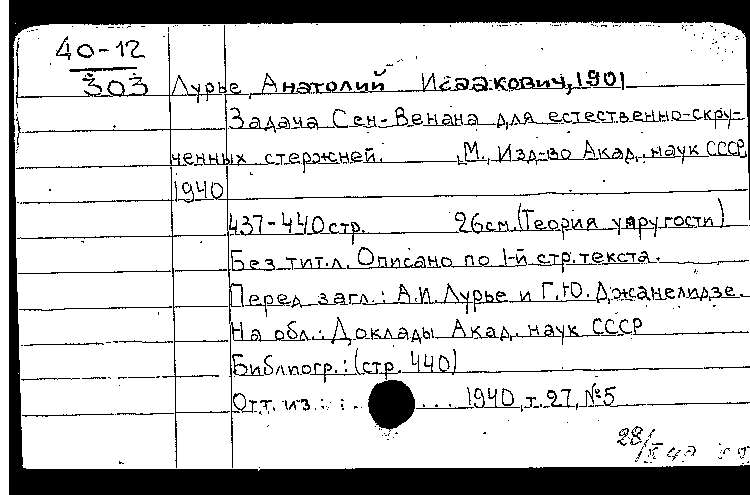 40-12
303
Лурье, Анатолий Исаакович, 1901
Задача Сен-Венана для естественно-скру-
ченных стержней. М., Изд-во Акад. наук СССР,
1940
437-440 стр. 26 см. (Теория упругости)
Без тит. л. Описано по 1-й стр. текста.
Перед загл.: А.И. Лурье и Г.Ю. Джанелидзе.
На обл.: Доклады Акад. наук СССР
Библиогр.: (стр. 440)
Отт. из.: ... 1940, т. 27, №5
28/